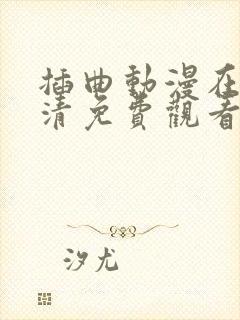 插曲動漫在
清免費觀看
汐尤